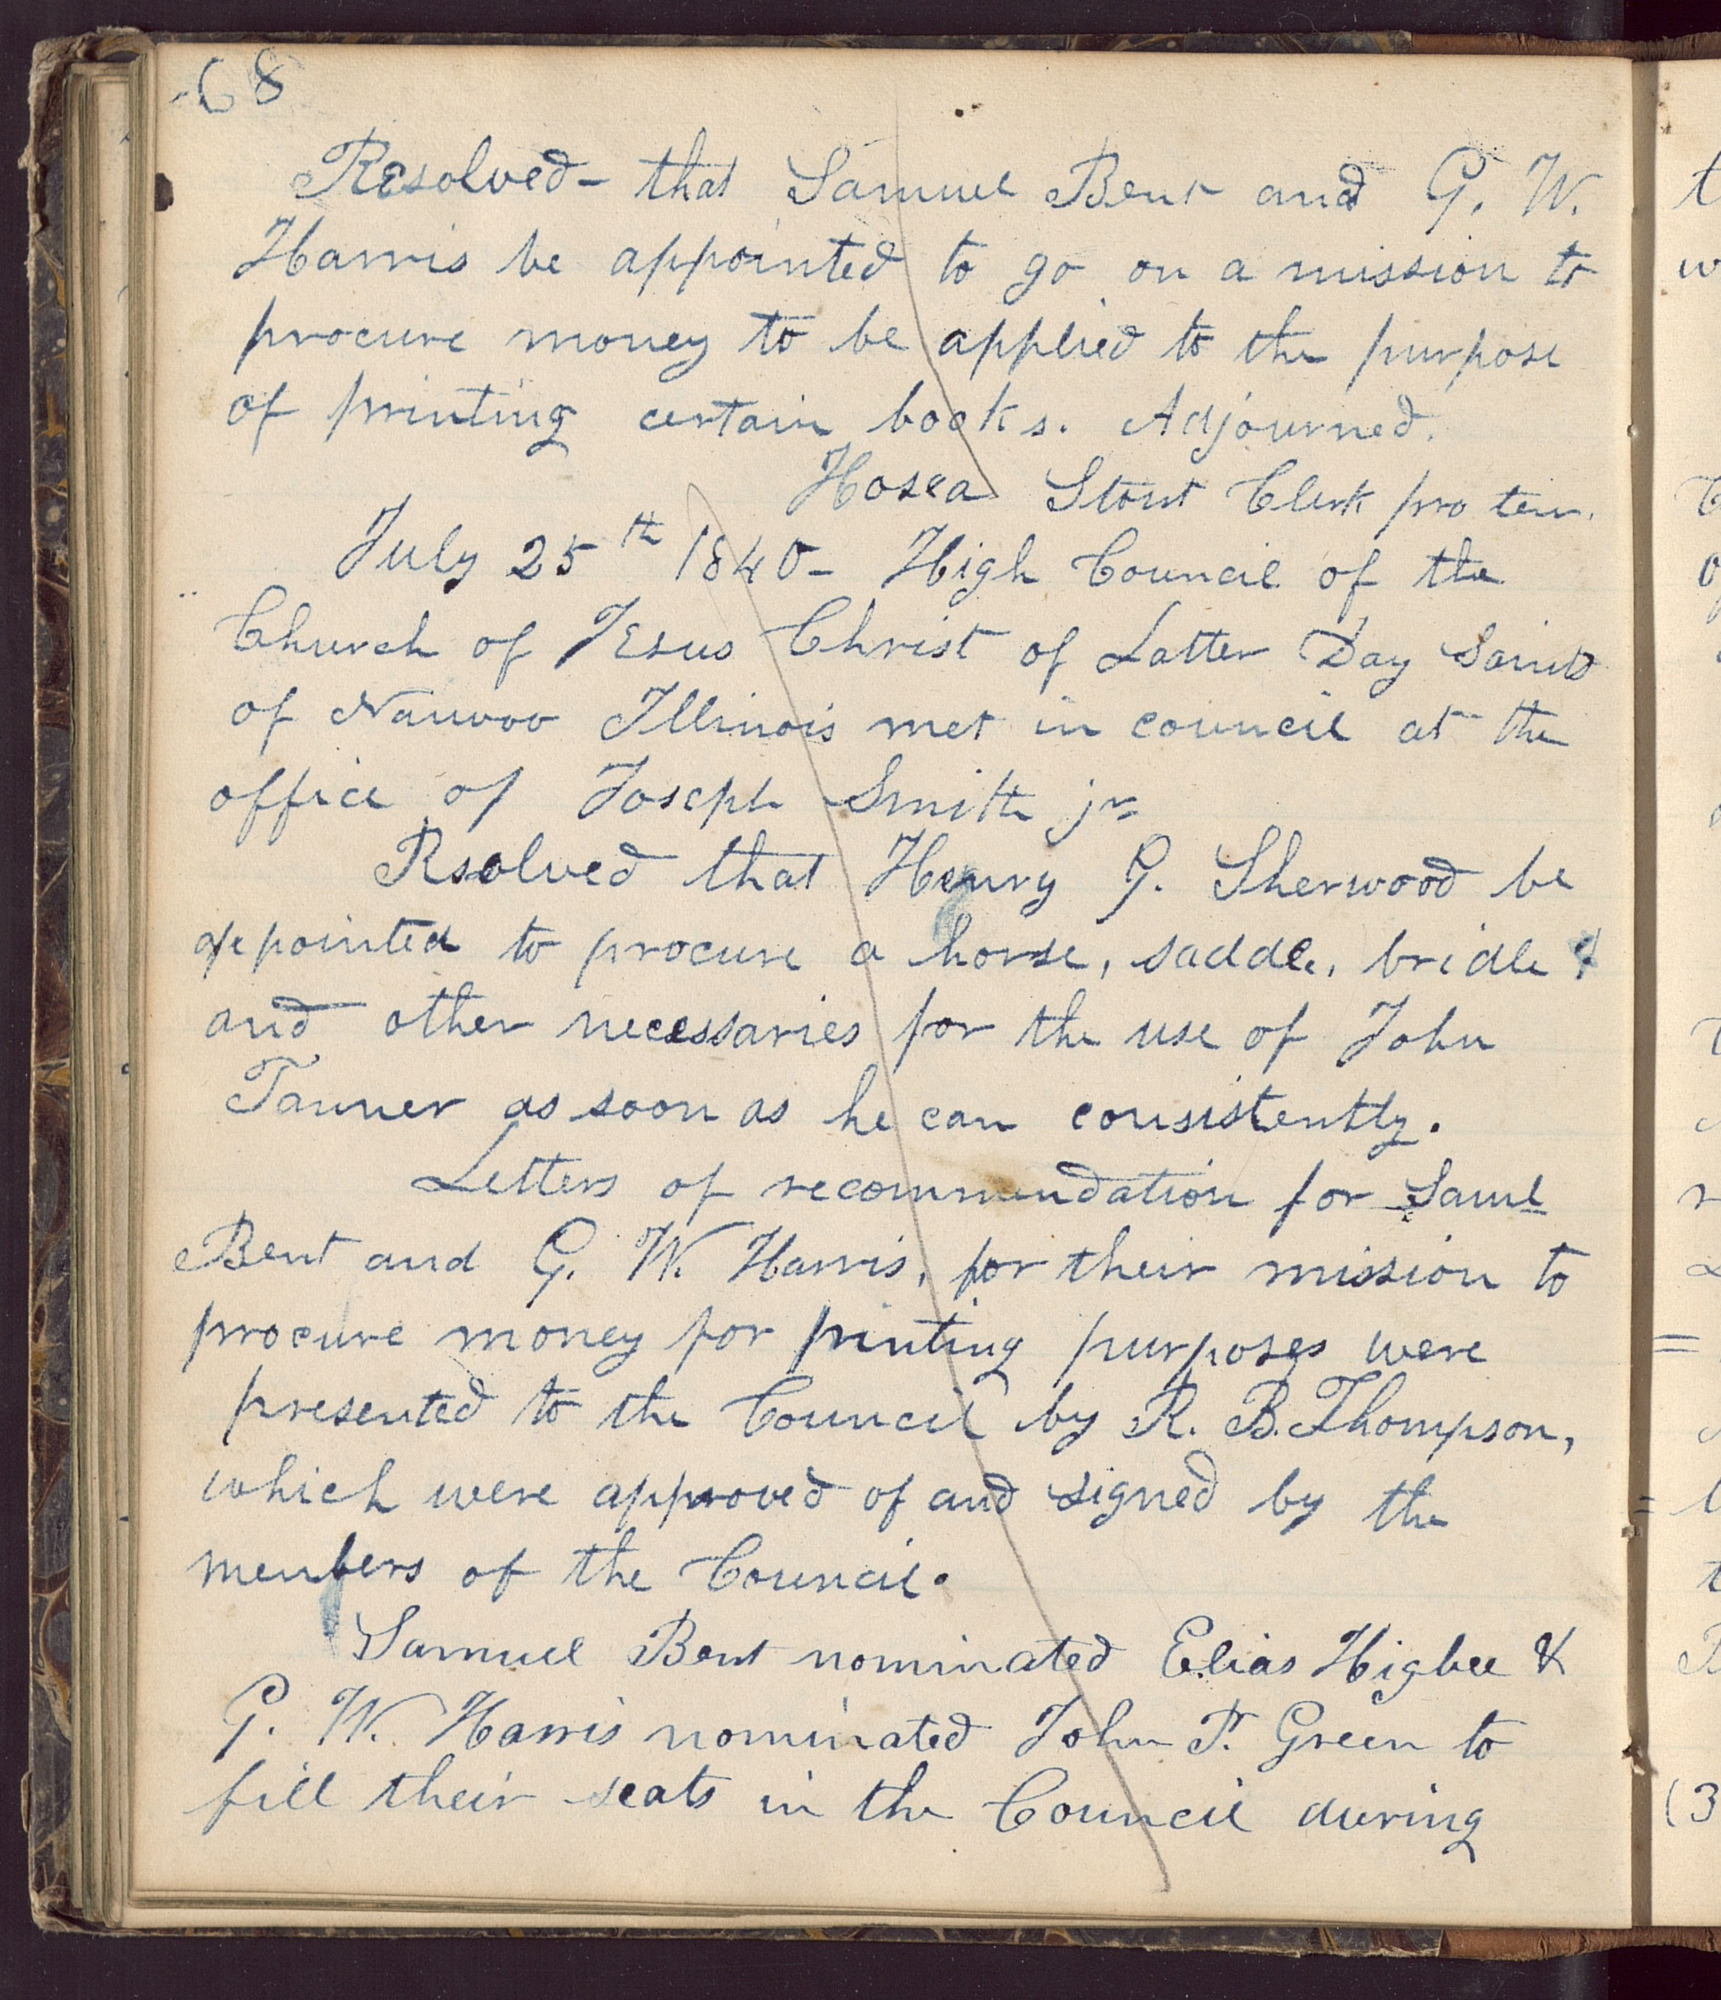 68
Resolved- that Samuel Bent and G. W.
Harris be appointed to go on a mission to
procure money to be applied to the purpose
of printing certain books. Adjourned.
Hosea Stout Clerk pro tem.
July 25th 1840- High Council of the
Church of Jesus Christ of Latter Day Saints
of Nauvoo Illinois met in council at the
office of Joseph Smith jr
Rsolved that Henry G. Sherwood be
appointed to procure a horse, saddle, bridle &
and other necessaries for the use of John
Tanner as soon as he can consistently.
Letters of recommendation for Saml
Bent and G. W. Harris, for their mission to
procure money for printing purposes were
presented to the Council by R. B. Thompson,
which were approved of and signed by the
members of the Council.
Samuel Bent nominated Elias Higbee &
G. W. Harris nominated John P. Green to
fill their seats in the Council during